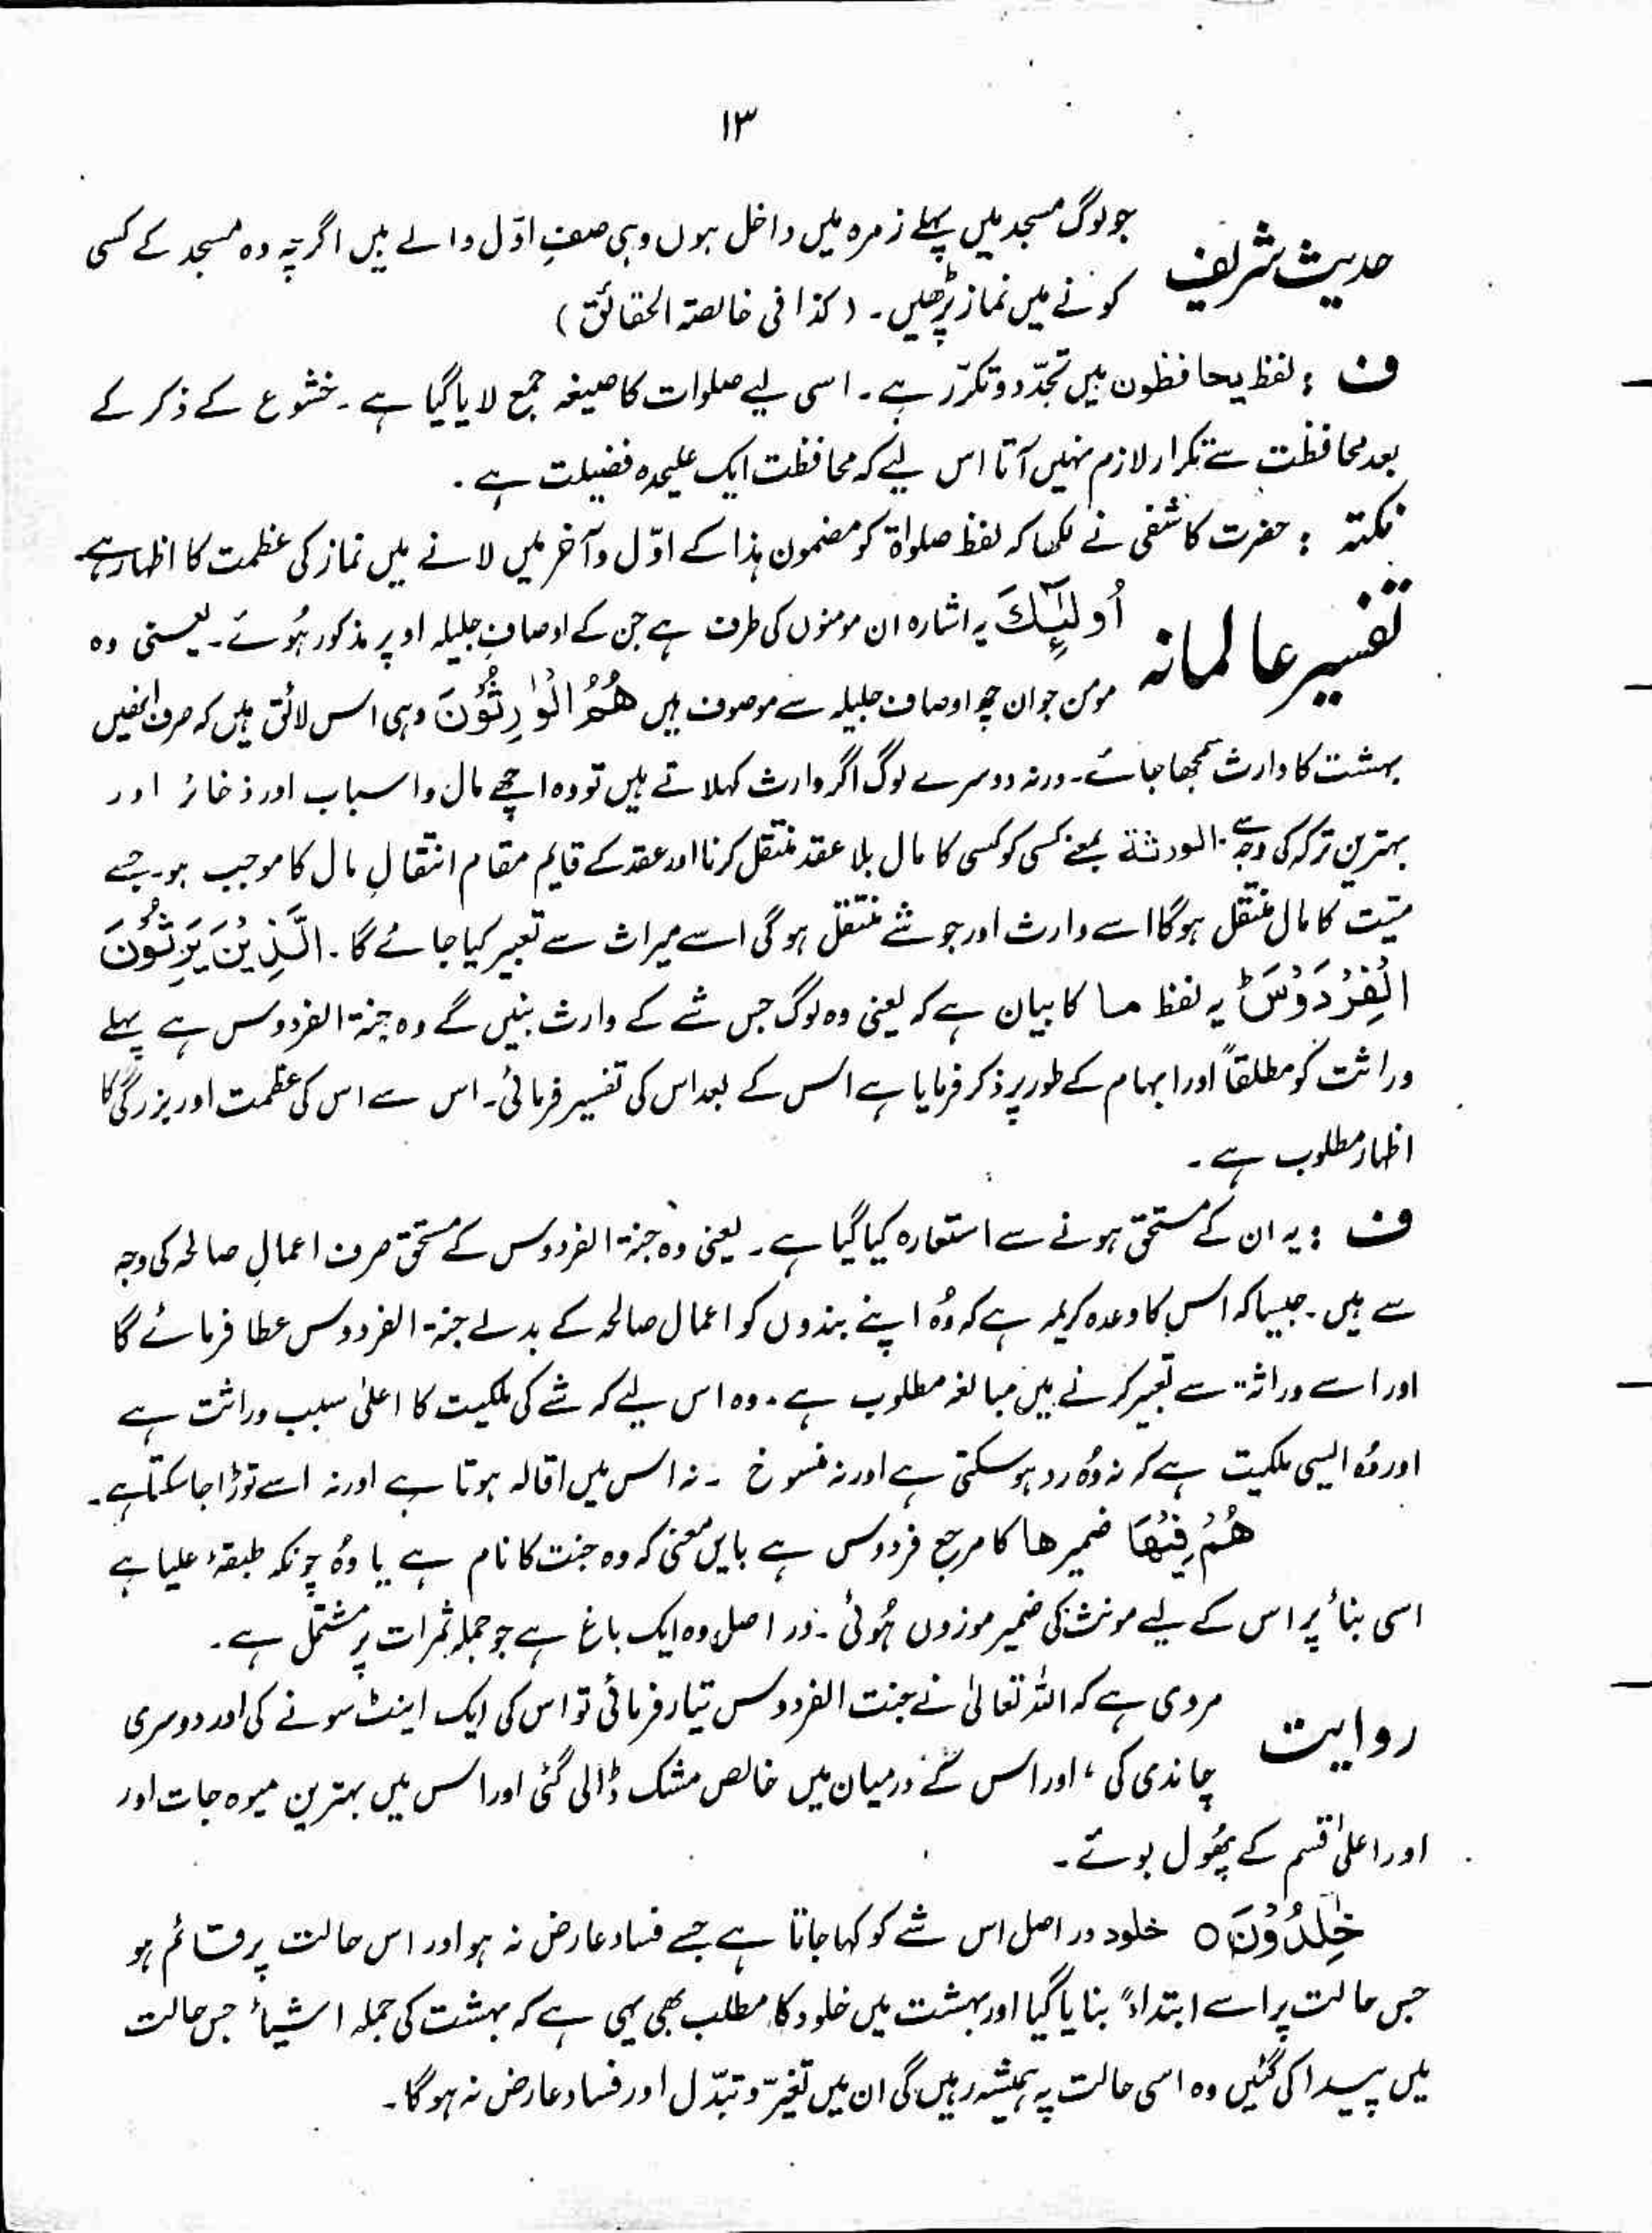 ۱۳
حدیث شریف جو لوگ مسجد میں پہلے زمرہ میں داخل ہوں وہی صفِ اوّل والے ہیں اگرچہ وہ مسجد کے کسی
کونے میں نماز پڑھیں۔ (کذا فی خالصۃ الحقائق)
ف : لفظ یحافظون میں تجدّد و تکرّر ہے۔ اسی لیے صلوات کا صیغہ جمع لایا گیا ہے۔ خشوع کے ذکر کے
بعد محافظت سے تکرار لازم نہیں آتا اس لیے کہ محافظت ایک علیحدہ فضیلت ہے۔
نکتہ : حضرت کاشفی نے لکھا کہ لفظ صلواۃ کو مضمون ہذا کے اوّل و آخر میں لانے میں نماز کی عظمت کا اظہار ہے۔
تفسیر عالمانہ اُولٰٓئِکَ یہ اشارہ ان مومنوں کی طرف ہے جن کے اوصافِ جلیلہ اوپر مذکور ہُوئے۔ یعنی وہ
مومن جو ان چھ اوصاف جلیلہ سے موصوف ہیں ھُمُ الْوٰرِثُوْنَ وہی اس لائق ہیں کہ صرف انھیں
بہشت کا وارث سمجھا جائے۔ ورنہ دوسرے لوگ اگر وارث کہلاتے ہیں تو وہ اچھے مال و اسباب اور ذخائر اور
بہترین ترکہ کی وجہ سے۔ الورثۃ بمعنے کسی کو کسی کا مال بلا عقد منتقل کرنا اور عقد کے قایم مقام انتقالِ مال کا موجب ہو۔ جسے
میّت کا مال منتقل ہوگا اسے وارث اور جو شے منتقل ہوگی اسے میراث سے تعبیر کیا جائے گا۔ الَّذِیْنَ یَرِثُوْنَ
الْفِرْدَوْسَ ط یہ لفظ ما کا بیان ہے کہ یعنی وہ لوگ جس شے کے وارث بنیں گے وہ جنۃ الفردوس ہے پہلے
وراثت کو مطلقاً اور ابہام کے طور پر ذکر فرمایا ہے اس کے بعد اس کی تفسیر فرمائی۔ اس سے اس کی عظمت اور بزرگی کا
اظہار مطلوب ہے۔
ف : یہ ان کے مستحق ہونے سے استعارہ کیا گیا ہے۔ یعنی وہ جنۃ الفردوس کے مستحق صرف اعمالِ صالحہ کی وجہ
سے ہیں۔ جیسا کہ اس کا وعدہ کریمہ ہے کہ وُہ اپنے بندوں کو اعمال صالحہ کے بدلے جنۃ الفردوس عطا فرمائے گا
اور اسے وراثۃ سے تعبیر کرنے میں مبالغہ مطلوب ہے۔ وہ اس لیے کہ شے کی ملکیت کا اعلیٰ سبب وراثت ہے
اور وُہ ایسی ملکیت ہے کہ نہ وُہ رد ہوسکتی ہے اور نہ منسوخ ۔ نہ اس میں اقالہ ہوتا ہے اور نہ اسے توڑا جاسکتا ہے۔
ھُمْ فِیْھَا ضمیر ھا کا مرجع فردوس ہے بایں معنی کہ وہ جنت کا نام ہے یا وُہ چونکہ طبقۂ علیا ہے
اسی بناء پر اس کے لیے مونث کی ضمیر موزوں ہُوئی۔ در اصل وہ ایک باغ ہے جو جملہ ثمرات پر مشتمل ہے۔
روایت مروی ہے کہ اللہ تعالیٰ نے جنت الفردوس تیار فرمائی تو اس کی ایک اینٹ سونے کی اور دوسری
چاندی کی ، اور اس کے درمیان میں خالص مشک ڈالی گئی اور اس میں بہترین میوہ جات اور
اور اعلیٰ قسم کے پھُول بوئے۔
خٰلِدُوْنَ ○ خلود در اصل اس شے کو کہا جاتا ہے جسے فساد عارض نہ ہو اور اس حالت پر قائم ہو
جس حالت پر اسے ابتداءً بنایا گیا اور بہشت میں خلود کا مطلب بھی یہی ہے کہ بہشت کی جملہ اشیاء جس حالت
میں پیدا کی گئیں وہ اسی حالت پہ ہمیشہ رہیں گی ان میں تغیّر و تبدّل اور فساد عارض نہ ہوگا۔